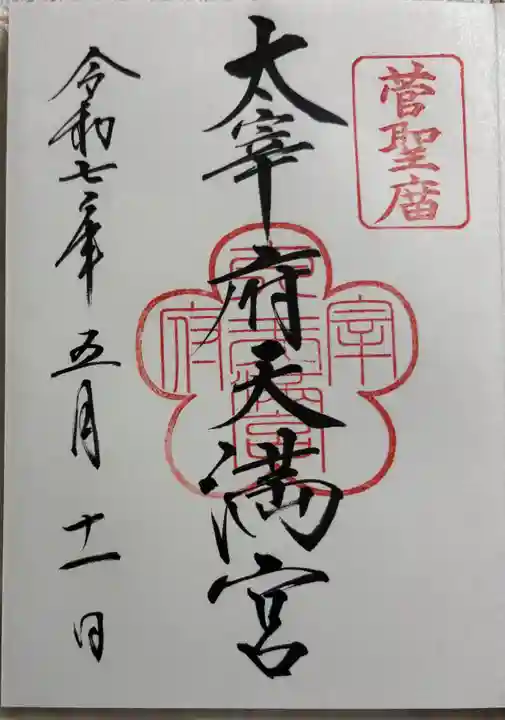 菅聖庿
太宰府天満宮
令和七年五月十一日